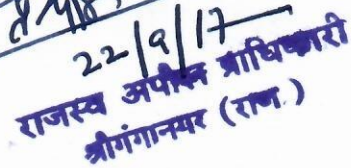 22/9/17
राजस्व अपील प्राधिकारी
श्रीगंगानगर (राज.)